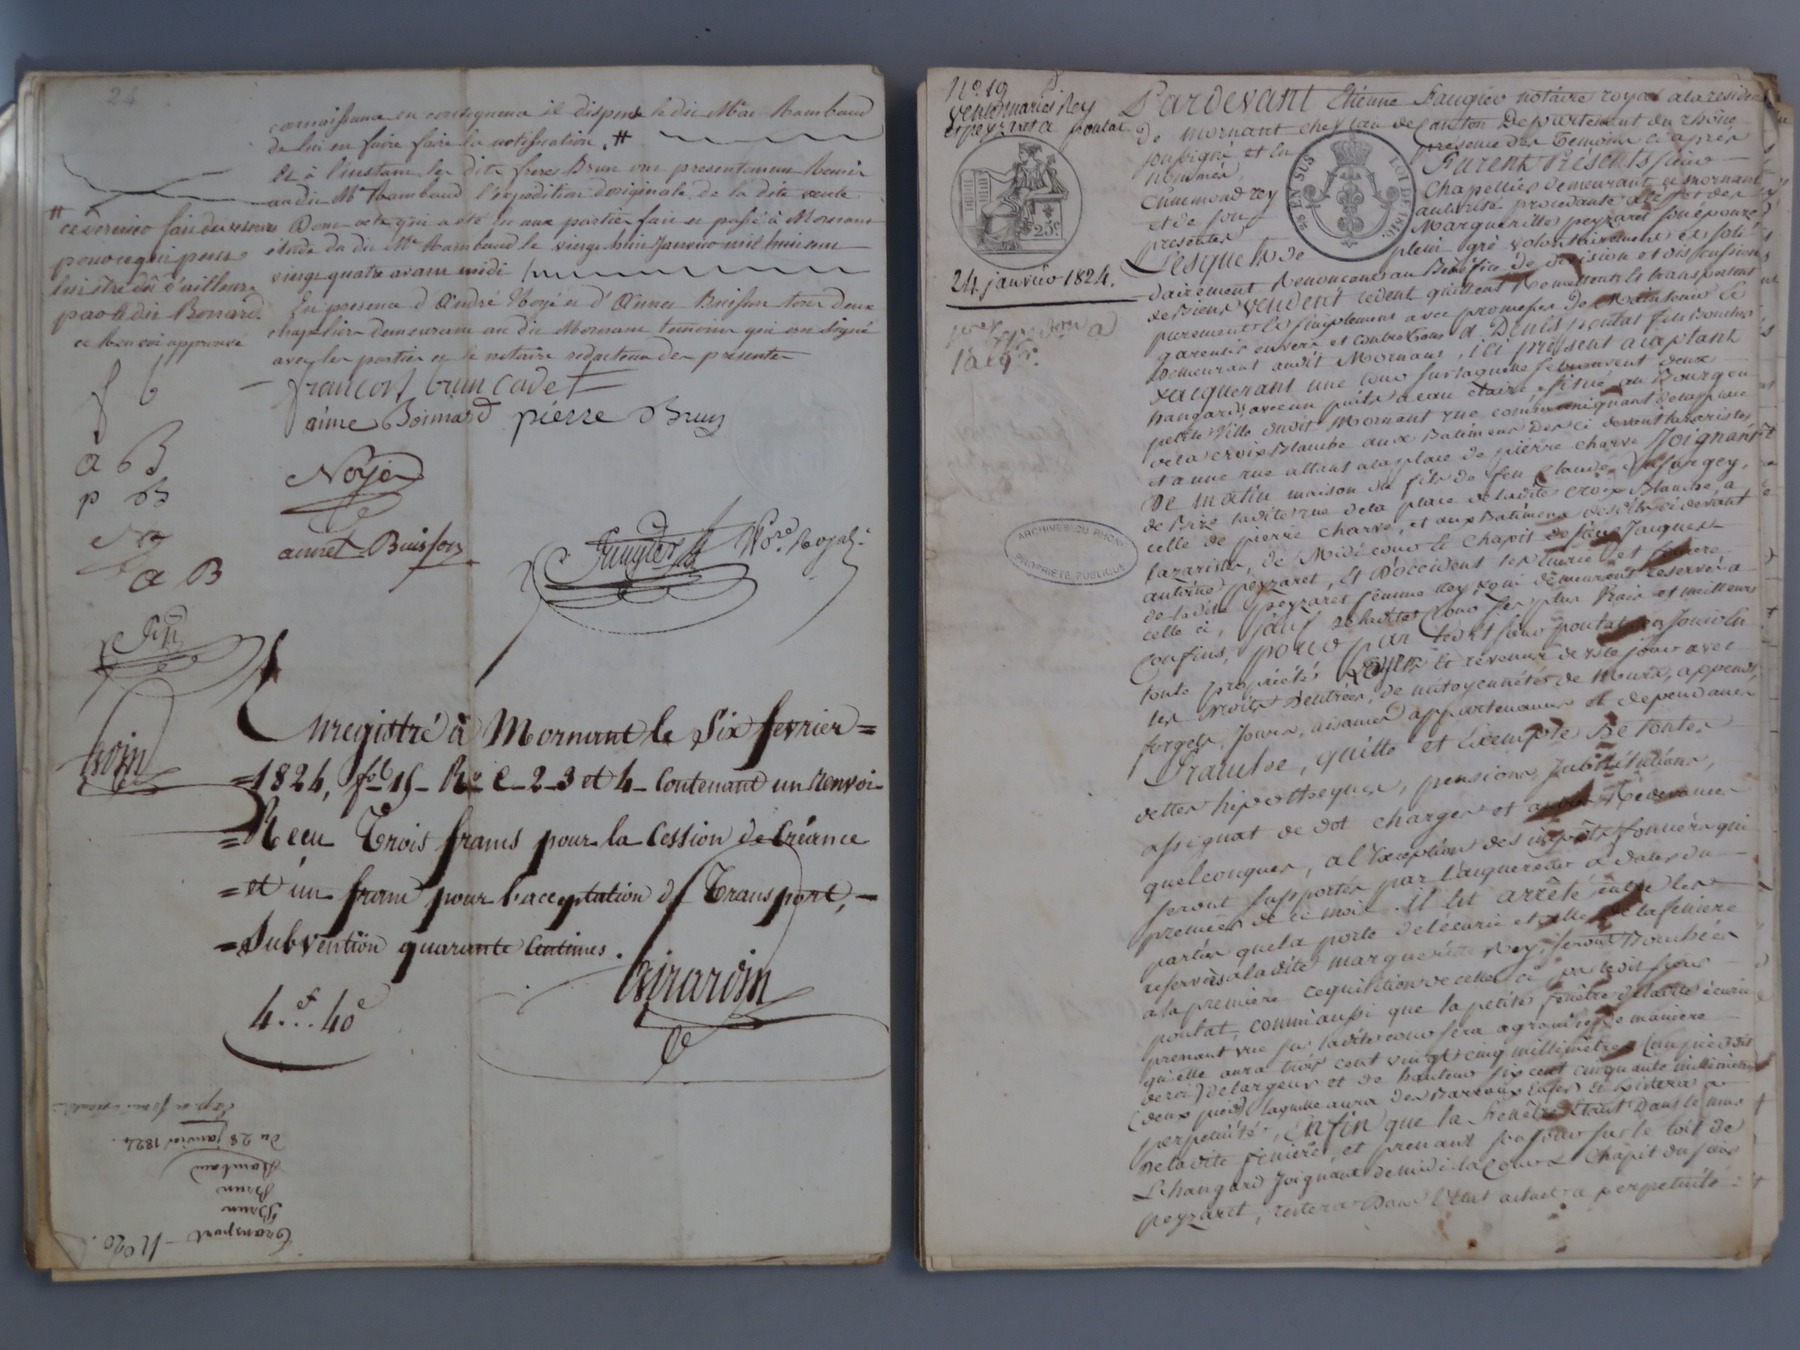 24
connoissance en consequence il dispense le dit Mr Rambaud
de lui en faire faire la notification. #
Et à l'instant les dits freres Brun ont presentement Remis
au dit Mr Rambaud l'expedition originale de la dite vente
Dont acte qui a été lu aux parties fait et passé à Mornant
étude du dit Me Rambaud le vingt huit Janvier mil huit cent
vingt quatre avant midi
En presence d'André Noyé et d'Aimé Buisson tous deux
chapeliers demeurant au dit Mornant temoins qui ont signé
avec les parties et le notaire redacteur des presentes
#
pour ce qui peut
lui être dû d'ailleurs
par le dit Bonnard
ce renvoi approuvé
f b
a B
p B
a B
françois brun cadet
aimé Bonnard pierre Brun
Noyé
aimé Buisson
Nore Royal
Enregistré à Mornant le Six fevrier =
= 1824, fo 15 Ro C. 2 3 et 4 Contenant un renvoi
= Recu Trois francs pour la Cession de Créance
= et un franc pour l'acceptation de Transport, -
= Subvention quarante Centimes.
Girardin
4 f 40 c
No 20.
Transport
Brun
Brun
Rambaud
Du 28 janvier 1824.
No 19
Vente mariés Rey
et peyzaret a poutat
24 janvier 1824.
25 c
25 EN SUS
LOI DE 1816
ARCHIVES DU RHONE
PROPRIETE PUBLIQUE
Pardevant Etienne Laugier notaire royal a la residence
de Mornant chef lieu de Canton Departement du rhône
soussigné et en
presence des Temoins ci après
nommés,
Furent Presents sieur
Chapellier demeurant a mornant
Claude rey
et de son
autorité procedante
Marguerite peyzaret son épouse
presentes
Lesquels de
plein gré volontairement et soli
dairement Renonçant au Benefice de Division et discussion
de Biens vendent cedent quittent Remettent et transportent
purement et simplement avec promesse de Maintenir et
garentir envers et contre tous a Denis poutat fils Boucher
demeurant audit Mornant, ici present acceptant
et acquerant une cour sur laquelle se trouvent deux
hangards avec un puits a eau claire, situé au Bourg ou
petite Ville dudit Mornant rue communiquant de la place
de la croix Blanche aux Batimens des ci devant lazaristes,
et a une rue allant a la place de pierre charve Joignant
De matin maison du fils de feu Claude Dufurgey,
de Bize ladite rue de la place de ladite croix Blanche, a
celle de pierre charve, et aux Batimens desdits ci devant
lazaristes, de Midi cour et Chapit de sieur Jacques
antoine peyzaret, Et D'occident les écurie et feniere
de ladite peyzaret femme Rey qui demeurent reservées a
celle ci, sauf de ladite Cour ses plus vrais et meilleurs
Confins, pour par ledit sieur poutat en Jouir en
toute propriété Loyers et revenus de ce jour avec
les droits d'entrées, de mitoyennetés de Murs, appends,
forgets, Jours, aisances appartenances et dependances
Franche, quitte et Exempte De toutes
dettes hipotheques, pensions, substitutions,
assignat de dot charges et autres Redevances
quelconques, a l'Exception des impôts fonciers qui
seront supportés par l'acquereur a dater du
premier de ce mois. Il est arrêté entre les
parties que la porte de l'écurie et celle de la feniere
reservées a ladite marguerite Rey, seront Bouchées
a la premiere requisition de celle ci par ledit sieur
poutat, comm'aussi que la petite fenêtre de ladite écurie
prenant vue sur ladite cour sera agrandie de maniere
qu'elle aura trois cent vingt cinq millimètres (un pied dit
de roi) de largeur et de hauteur six cent cinquante millimètres
(deux pieds) laquelle aura des Barreaux en fer et existera a
perpetuité, Enfin que la fenêtre étant Dans le mur
de ladite feniere, et prenant son jour sur le toit de
L'hangard Joignant de midi la Cour et Chapit du sieur
peyzaret, restera Dans l'état actuel a perpetuité